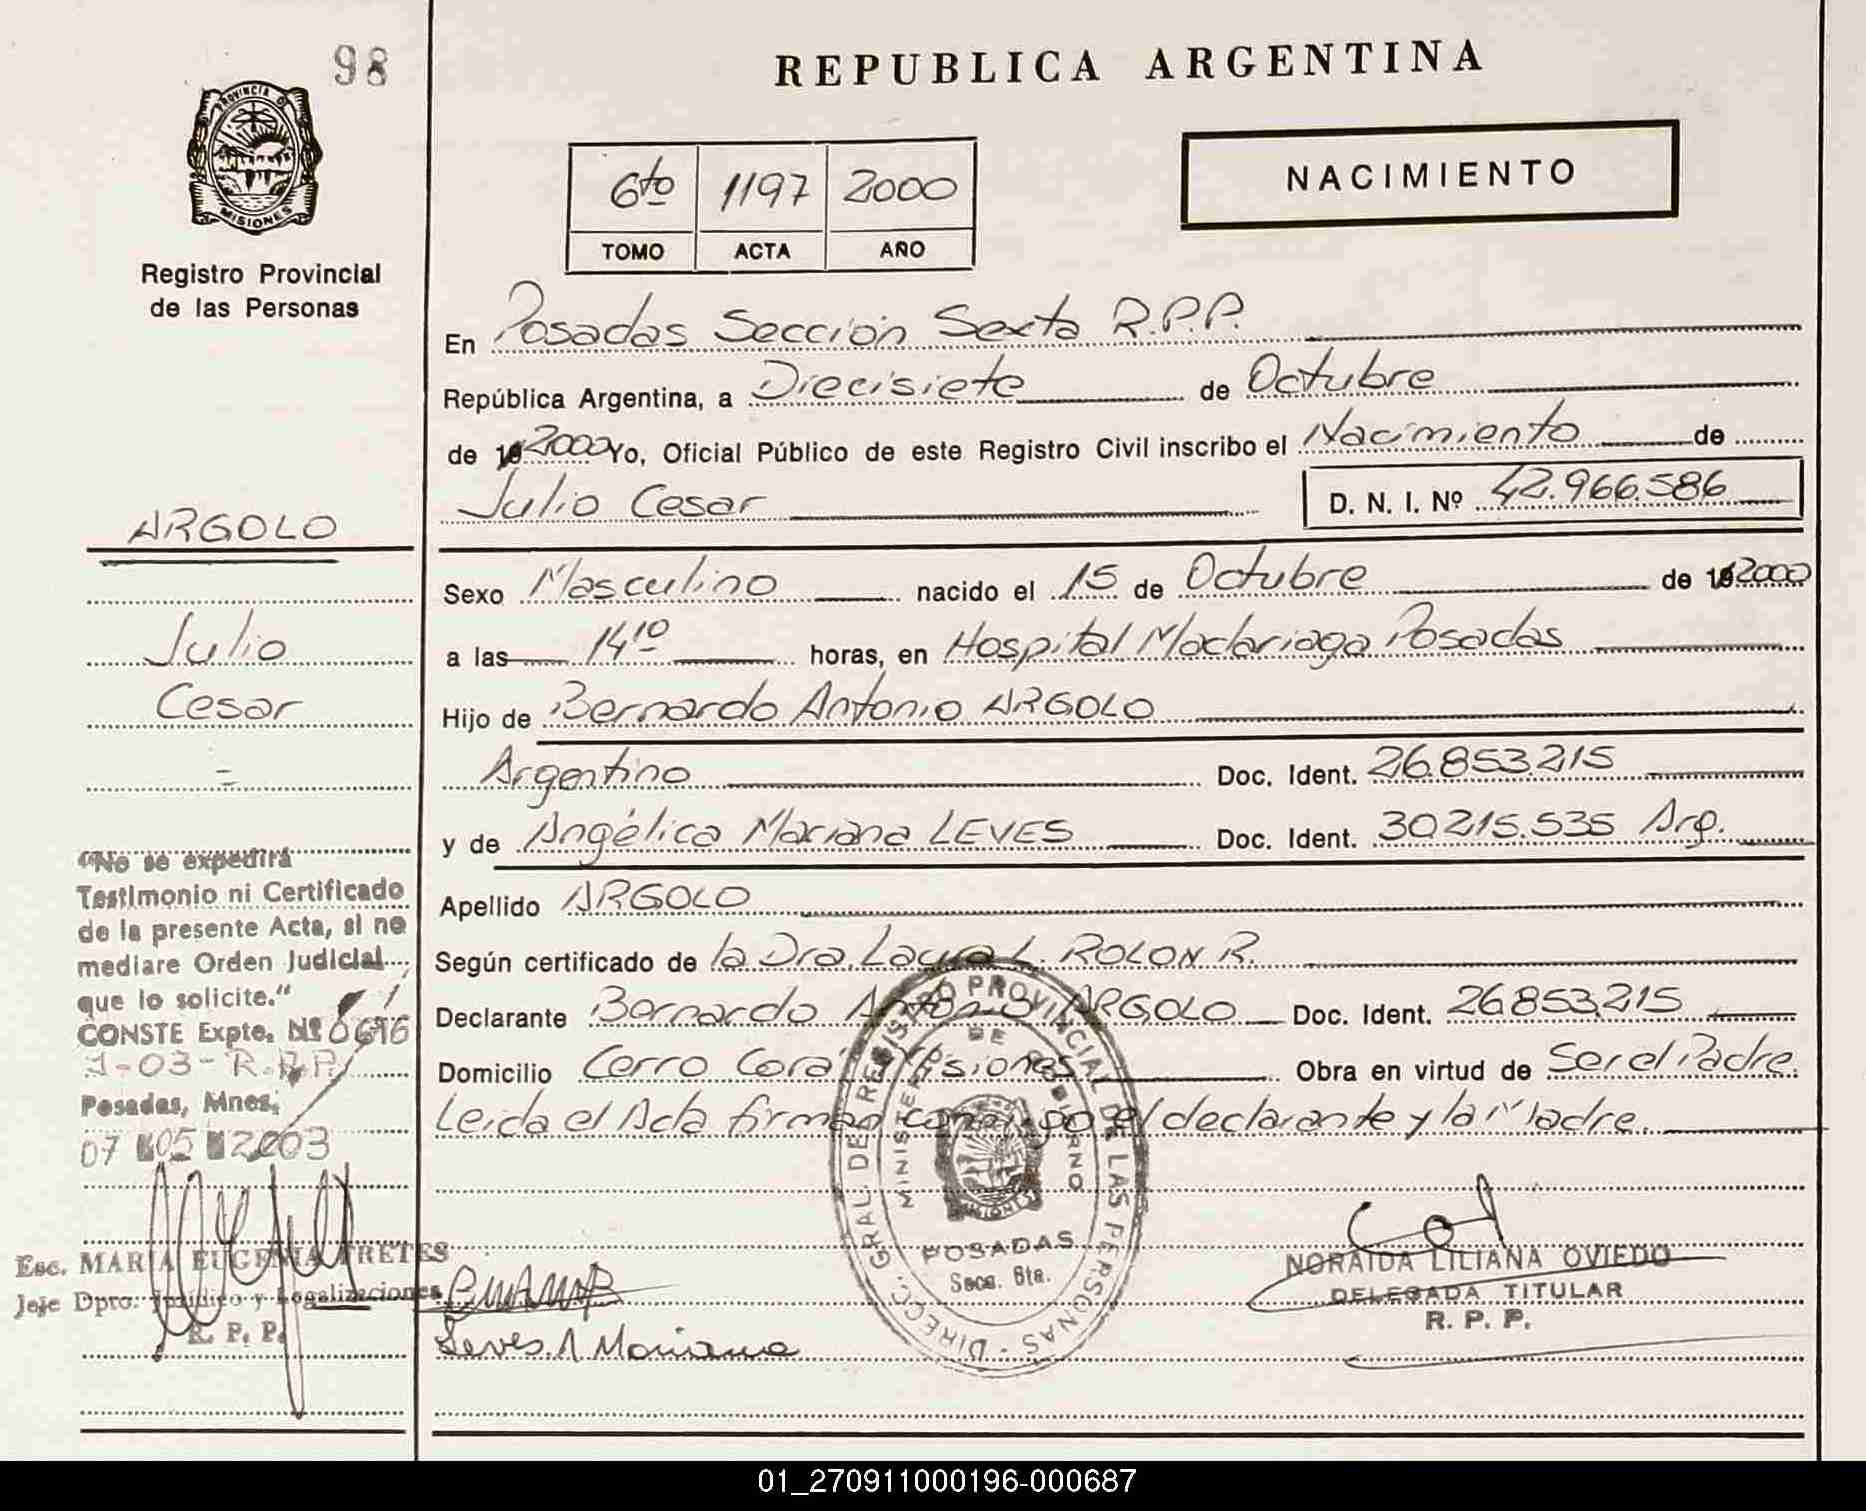 98
REPUBLICA ARGENTINA
PROVINCIA DE
MISIONES
Registro Provincial
de las Personas
6to 1197 2000
TOMO ACTA AÑO
NACIMIENTO
En Posadas Sección Sexta R.P.P.
República Argentina, a Diecisiete de Octubre
de 2000 Yo, Oficial Público de este Registro Civil inscribo el Nacimiento de
Julio Cesar D. N. I. Nº 42.966.586
ARGOLO
Julio
Cesar
=
Sexo Masculino nacido el 15 de Octubre de 2000
a las 14 10 horas, en Hospital Madariaga Posadas
Hijo de Bernardo Antonio ARGOLO
Argentino Doc. Ident. 26.853.215
y de Angélica Mariana LEVES Doc. Ident. 30.215.535 Arg.
Apellido ARGOLO
Según certificado de la Dra. Laura L. ROLON R.
Declarante Bernardo Antonio ARGOLO Doc. Ident. 26.853.215
Domicilio Cerro Corá Misiones Obra en virtud de Ser el Padre
Leida el Acta firman conmigo el declarante y la Madre.
"No se expedirá
Testimonio ni Certificado
de la presente Acta, si no
mediare Orden Judicial
que lo solicite."
CONSTE Expte. Nº
1-03-R.P.P.
Posadas, Mnes,
07 05 2003
Esc. MARIA EUGENIA FRETES
Jefe Dpto. Jurídico y Legalizaciones
R. P. P.
Leves. A Mariana
DIRECC. GRAL. DEL REGISTRO PROVINCIAL DE LAS PERSONAS
MINISTERIO DE GOBIERNO
MISIONES
POSADAS
Secc. 6ta.
NORAIDA LILIANA OVIEDO
DELEGADA TITULAR
R. P. P.
01_270911000196-000687